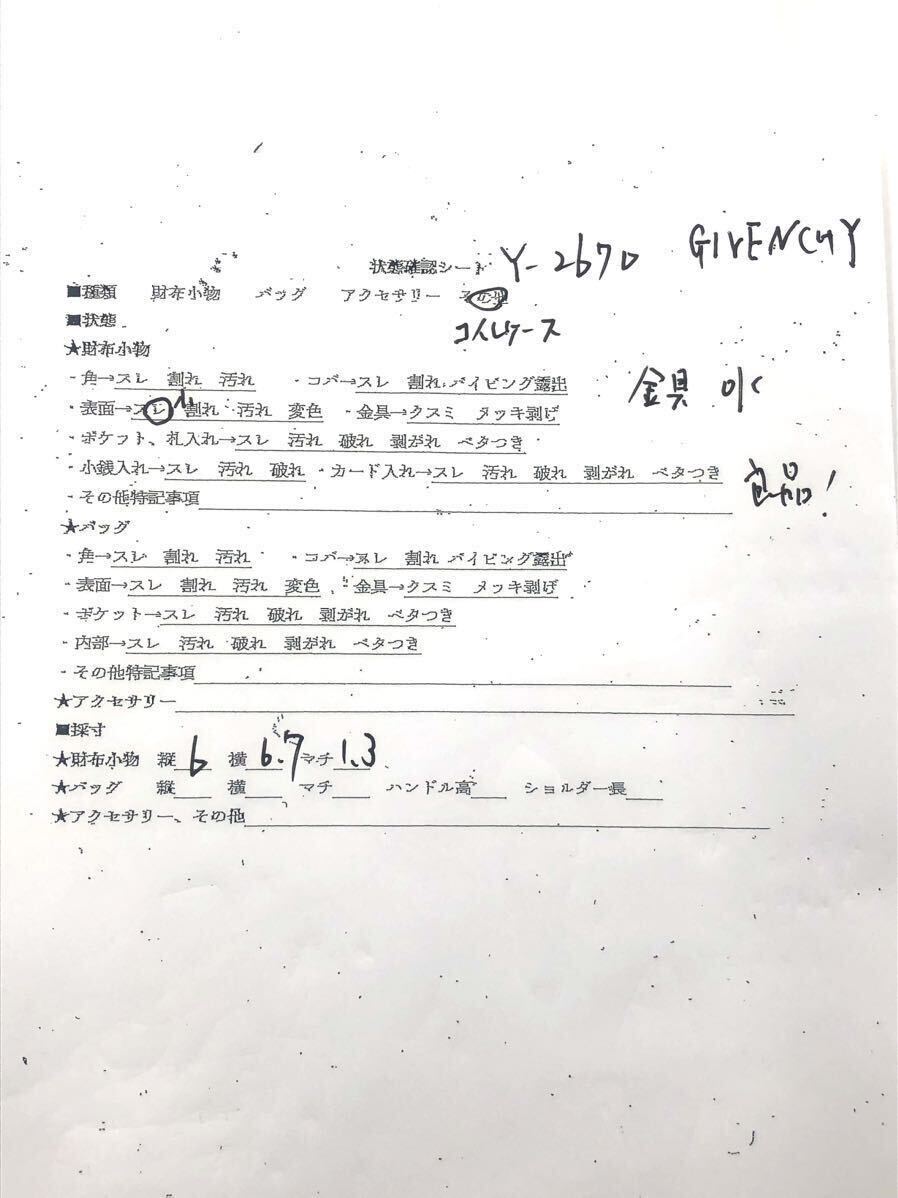 状態確認シート Y-2670 GIVENCHY
■種類 財布小物 バッグ アクセサリー その他
■状態 コインケース
★財布小物
・角→スレ 割れ 汚れ ・コバ→スレ 割れ パイピング露出 金具 OK
・表面→スレ 小 割れ 汚れ 変色 ・金具→クスミ メッキ剥げ
・ポケット、札入れ→スレ 汚れ 破れ 剥がれ ベタつき
・小銭入れ→スレ 汚れ 破れ ・カード入れ→スレ 汚れ 破れ 剥がれ ベタつき 良品!
・その他特記事項
★バッグ
・角→スレ 割れ 汚れ ・コバ→スレ 割れ パイピング露出
・表面→スレ 割れ 汚れ 変色 ・金具→クスミ メッキ剥げ
・ポケット→スレ 汚れ 破れ 剥がれ ベタつき
・内部→スレ 汚れ 破れ 剥がれ ベタつき
・その他特記事項
★アクセサリー
■採寸
★財布小物 縦 6 横 6.7 マチ 1.3
★バッグ 縦 横 マチ ハンドル高 ショルダー長
★アクセサリー、その他